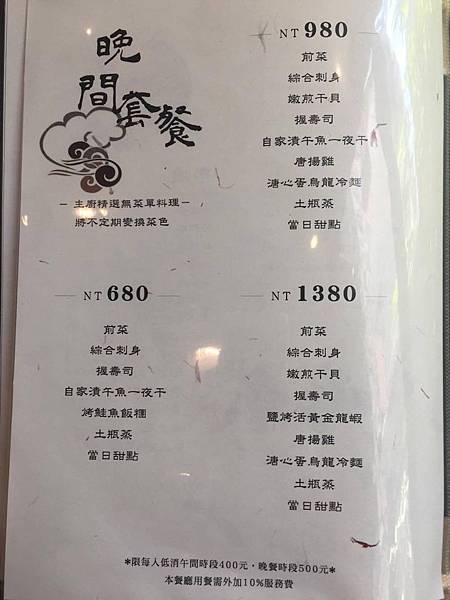 晚間套餐
－ 主廚精選無菜單料理－
將不定期變換菜色
NT 980
前菜
綜合刺身
嫩煎干貝
握壽司
自家漬午魚一夜干
唐揚雞
溏心蛋烏龍冷麵
土瓶蒸
當日甜點
NT 680
前菜
綜合刺身
握壽司
自家漬午魚一夜干
烤鮭魚飯糰
土瓶蒸
當日甜點
NT 1380
前菜
綜合刺身
嫩煎干貝
握壽司
鹽烤活黃金龍蝦
唐揚雞
溏心蛋烏龍冷麵
土瓶蒸
當日甜點
*限每人低消午間時段400元，晚餐時段500元*
本餐廳用餐需外加10%服務費